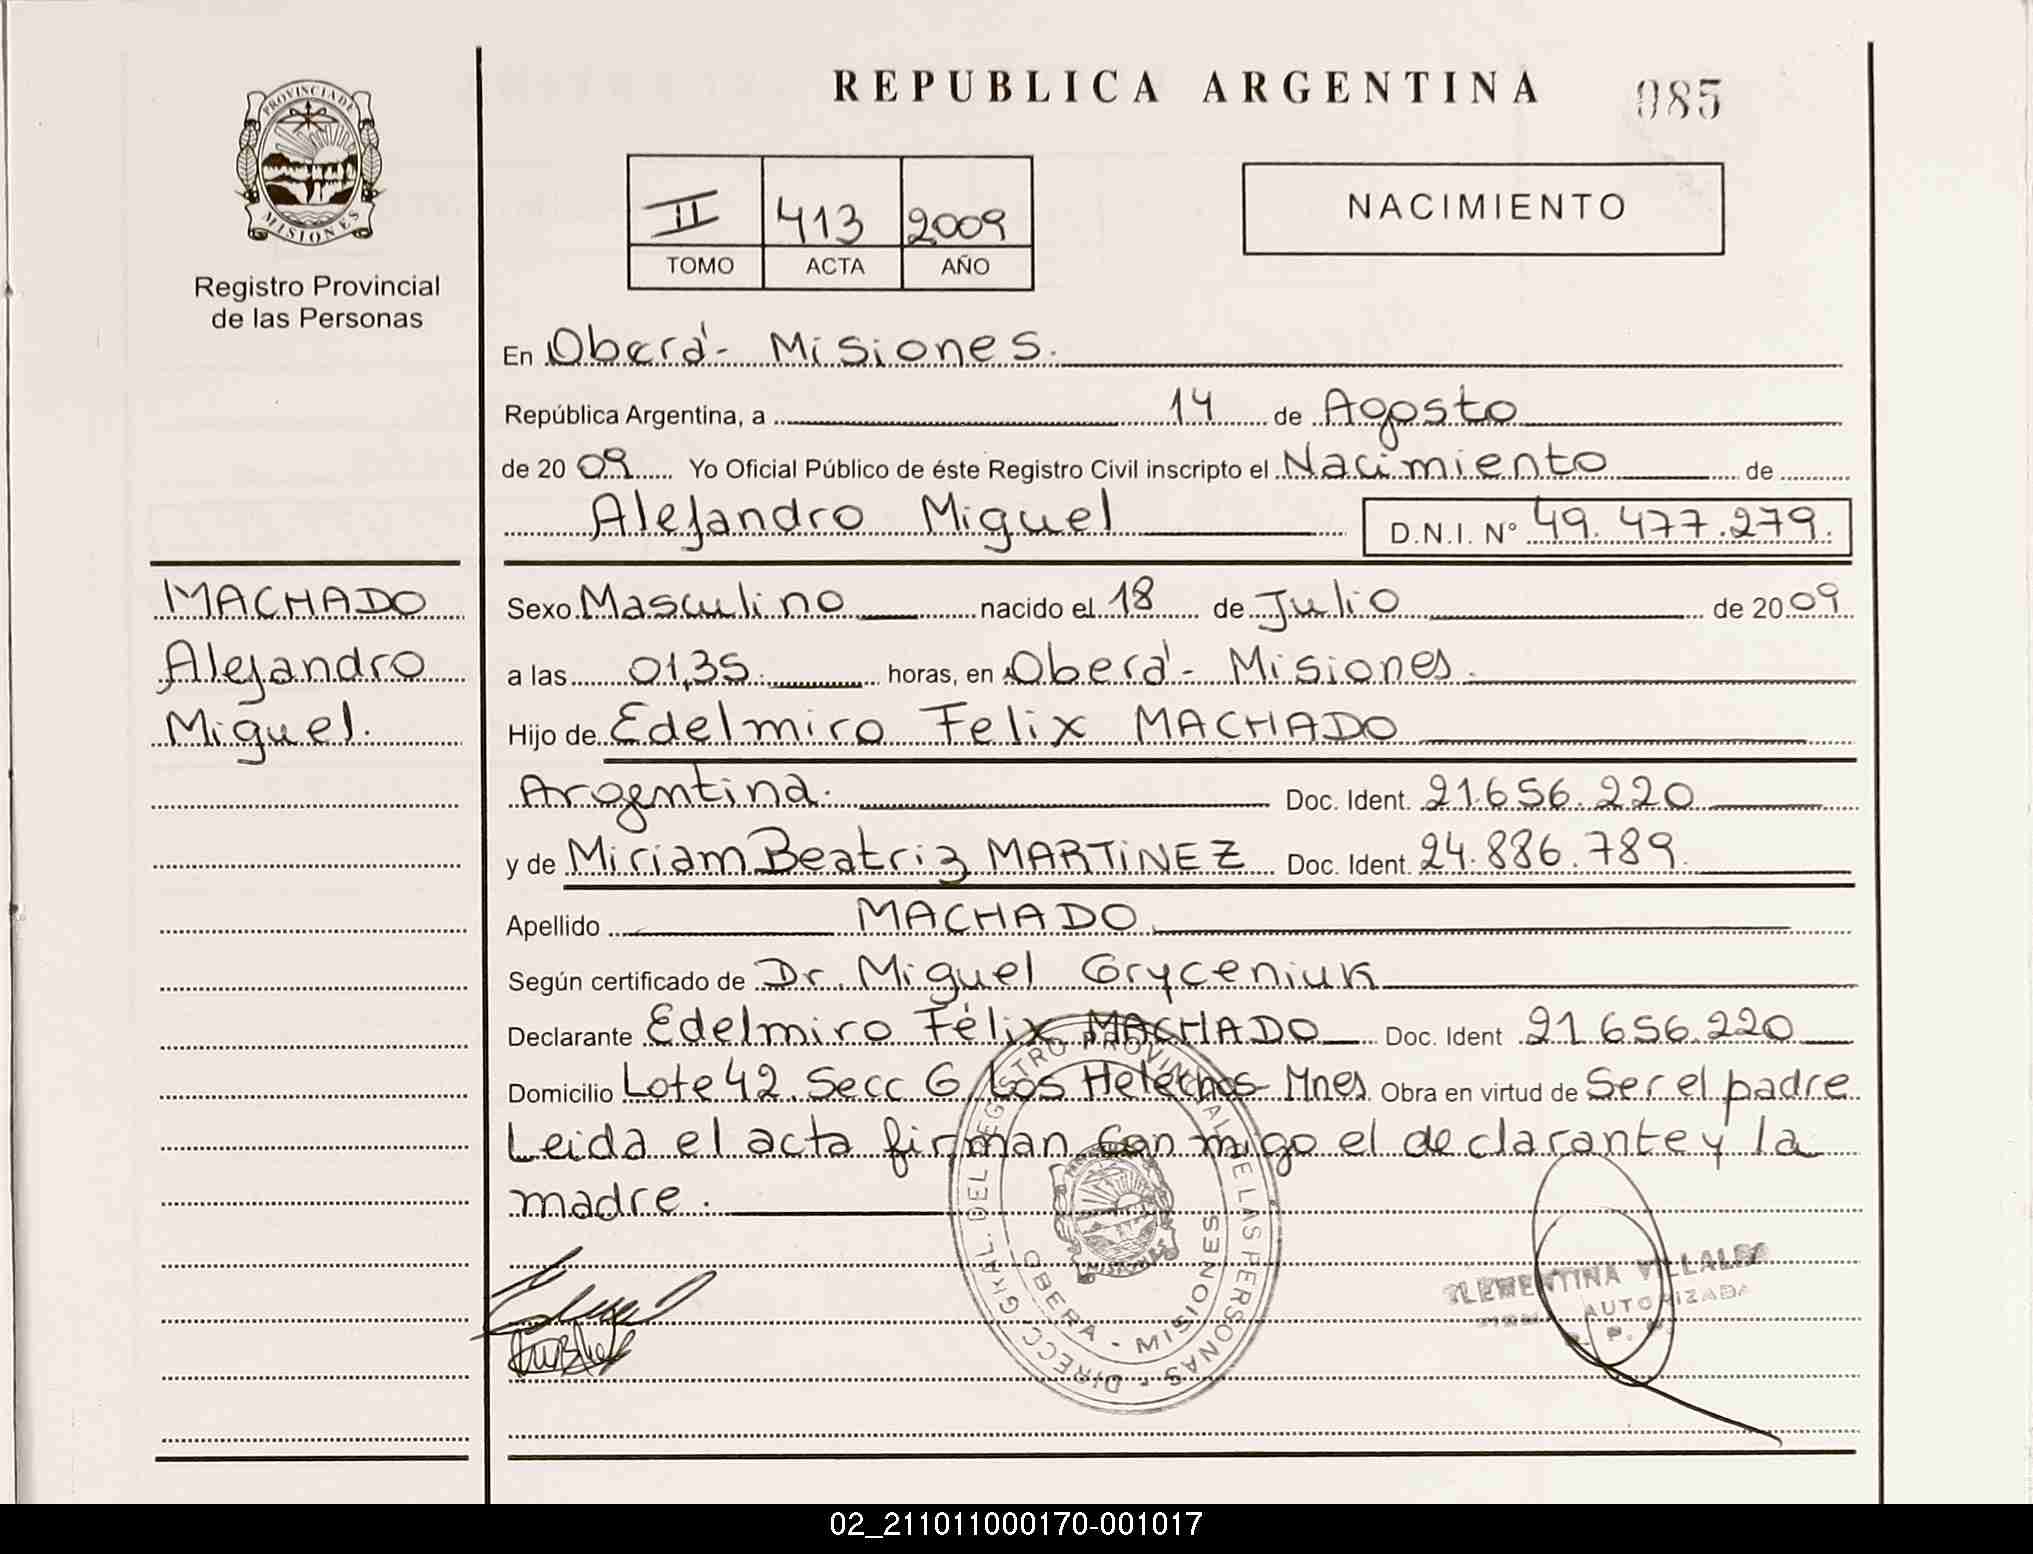 REPUBLICA ARGENTINA
085
PROVINCIA DE
MISIONES
Registro Provincial
de las Personas
II 413 2009
TOMO ACTA AÑO
NACIMIENTO
En Oberá - Misiones.
República Argentina, a 14 de Agosto
de 20 09 Yo Oficial Público de éste Registro Civil inscripto el Nacimiento de
Alejandro Miguel D.N.I. N° 49.477.279.
MACHADO
Alejandro
Miguel.
Sexo Masculino nacido el 18 de Julio de 20 09
a las 01,35 horas, en Oberá - Misiones.
Hijo de Edelmiro Felix MACHADO
Argentina. Doc. Ident. 21.656.220
y de Miriam Beatriz MARTINEZ Doc. Ident. 24.886.789.
Apellido MACHADO
Según certificado de Dr. Miguel Gryceniuk
Declarante Edelmiro Félix MACHADO Doc. Ident 21.656.220
Domicilio Lote 42. Secc 6 Los Helechos - Mnes Obra en virtud de Ser el padre
Leida el acta firman con migo el declarante y la
madre.
DIRECC. GRAL. DEL REGISTRO PROVINCIAL DE LAS PERSONAS -
OBERA - MISIONES
MISIONES
CLEMENTINA VILLALBA
AUTORIZADA
02_211011000170-001017